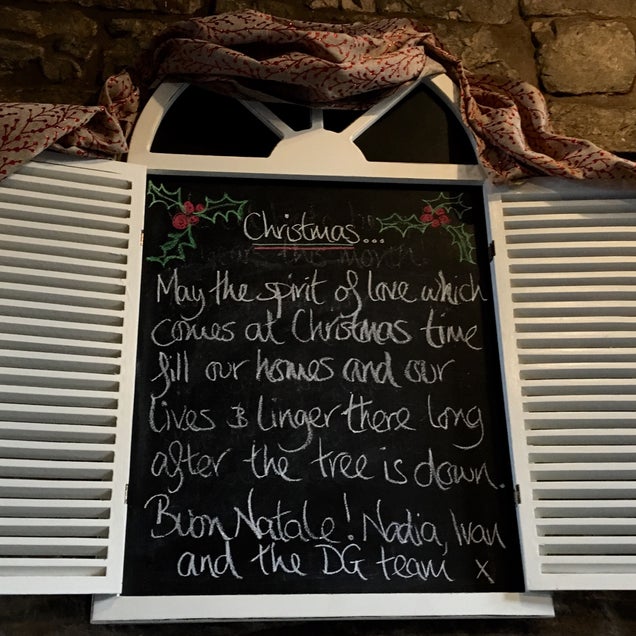 Christmas...
May the spirit of love which
comes at Christmas time
fill our homes and our
lives & linger there long
after the tree is down.
Buon Natale! Nadia, Ivan
and the DG team x